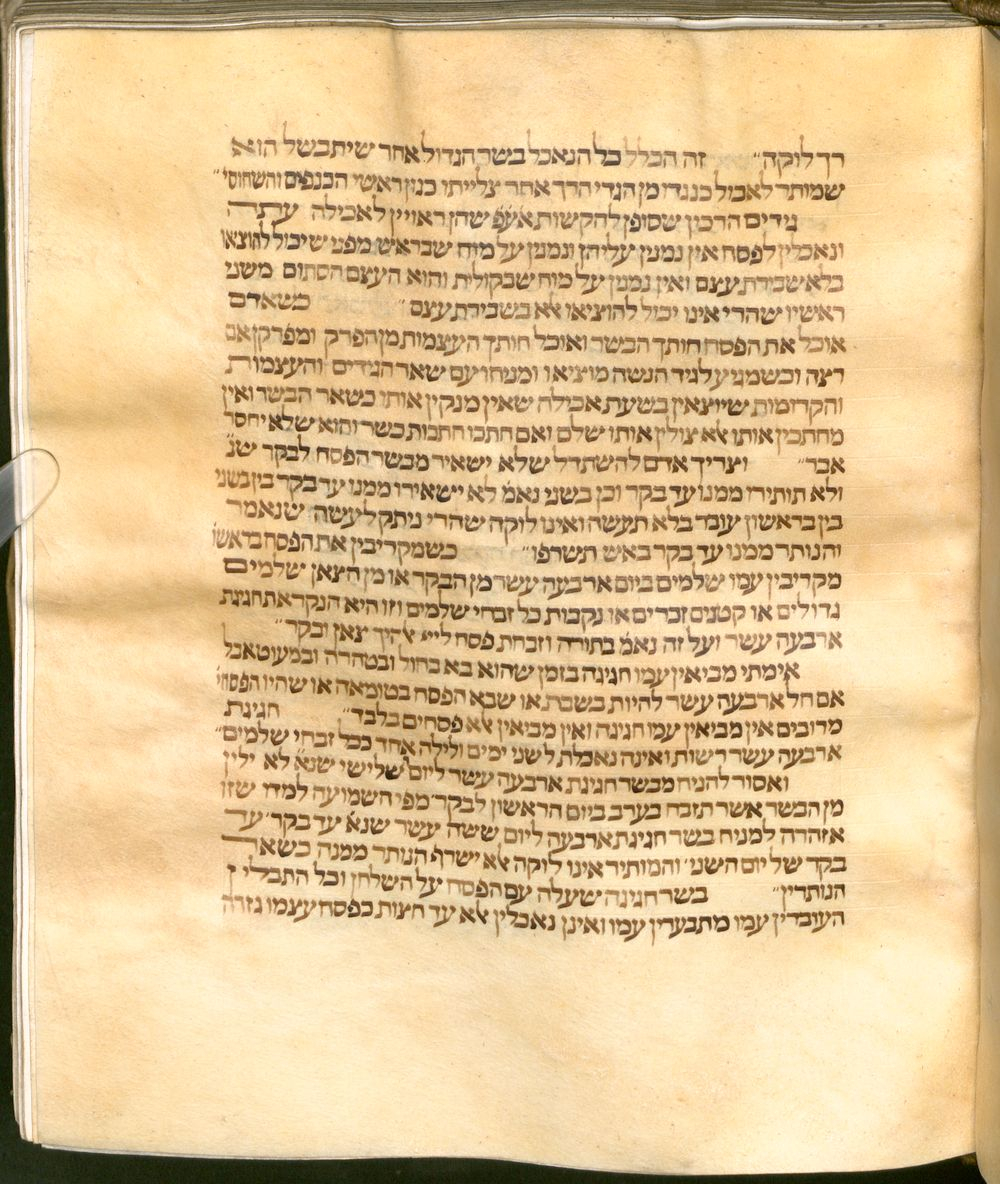 רך לוקה״ זה הכלל כל הנאכל בשר הגדול אחר שיתבשל הוא
שמותר לאכול כנגדו מן הגדי הרך אחר צלייתו כגון ראשי הכנפים והשחוסי״
גידים הרכין שסופן להקשות אעפ שהן ראויין לאכילה עתה
ונאכלין לפסח אין נמנין עליהן ונמנין על מוח שבראש מפני שיכול להוציאו
בלא שבירת עצם ואין נמנין על מוח שבקולית והוא העצם הסתום משני
ראשיו שהרי אינו יכול להוציאו אלא בשבירת עצם״ כשאדם
אוכל את הפסח חותך הבשר ואוכל חותך העצמות מן הפרק ומפרקן אם
רצה וכשמגיע לגיד הנשה מוציאו ומניחו עם שאר הגידים והעצמות
והקרומות שיוצאין בשעת אכילה שאין מנקין אותו כשאר הבשר ואין
מחתכין אותו אלא צולין אותו שלם ואם חתכו חתכות כשר והוא שלא יחסר
אבר״ וצריך אדם להשתדל שלא ישאיר מבשר הפסח לבקר שנ׳
ולא תותירו ממנו עד בקר וכן בשני נאמ׳ לא ישאירו ממנו עד בקר בין בשני
בין בראשון עובד בלא תעשה ואינו לוקה שהרי ניתק לעשה שנאמר
והנותר ממנו עד בקר באש תשרפו״ כשמקריבין את הפסח בראשו׳
מקריבין עמו שלמים ביום ארבעה עשר מן הבקר או מן הצאן שלמים
גדולים או קטנים זכרים או נקבות ככל זבחי שלמים וזו היא הנקראת חגיגת
ארבעה עשר ועל זה נאמ׳ בתורה וזבחת פסח לייי אלהיך צאן ובקר״
אימתי מביאין עמו חגיגה בזמן שהוא בא בחול ובטהרה ובמעוט אבל
אם חל ארבעה עשר להיות בשבת או שבא הפסח בטומאה או שהיו הפסחי׳
מרובים אין מביאין עמו חגיגה ואין מביאין אלא פסחים בלבד״ חגיגת
ארבעה עשר רשות ואינה נאכלת לשני ימים ולילה אחד ככל זבחי שלמים״
ואסור להניח מבשר חגיגת ארבעה עשר ליום שלישי שנא׳ לא ילין
מן הבשר אשר תזבח בערב ביום הראשון לבקר מפי השמועה למדו שזו
אזהרה למניח בשר חגיגת ארבעה ליום ששה עשר שנא׳ עד בקר עד
בקר של יום השני׳ והמותיר אינו לוקה אלא ישרף הנותר ממנה כשאר
הנותרין״ בשר חגיגה שעלה עם הפסח על השלחן וכל התבשילין
העובדין עמו מתבערין עמו ואינן נאכלין אלא עד חצות כפסח עצמו גזרה